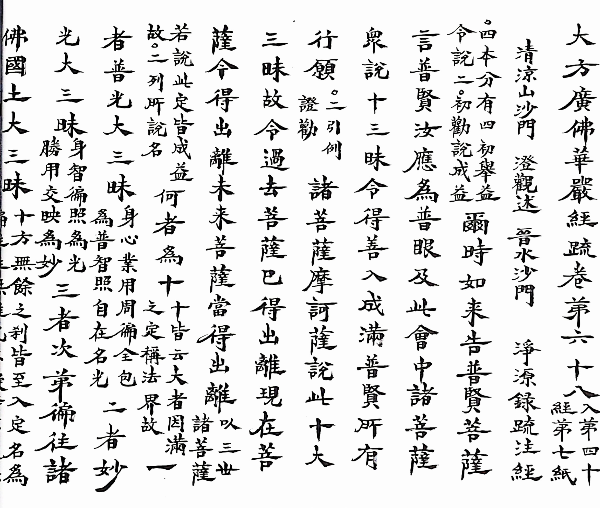 大方廣佛華嚴經疏卷第六十八入第四十經第七紙
清涼山沙門 澄觀述 晉水沙門 淨源錄疏注經
四本分有四初舉益令說二初勸說成益爾時如來告普賢菩薩
言普賢汝應為普眼及此會中諸菩薩
衆說十三昧令得善入成滿普賢所有
行願二引例證勸諸菩薩摩訶薩說此十大
三昧故令過去菩薩已得出離現在菩
薩今得出離未來菩薩當得出離以三世諸菩薩
若說此定皆成益故二列所說名何者為十十皆云大者因滿之定稱法界故一
者普光大三昧身心業用周徧全包為普智照自在名光二者妙
光大三昧身智徧照為光勝用交映為妙三者次第徧往諸
佛國土大三昧十方無餘之刹皆至入定名為